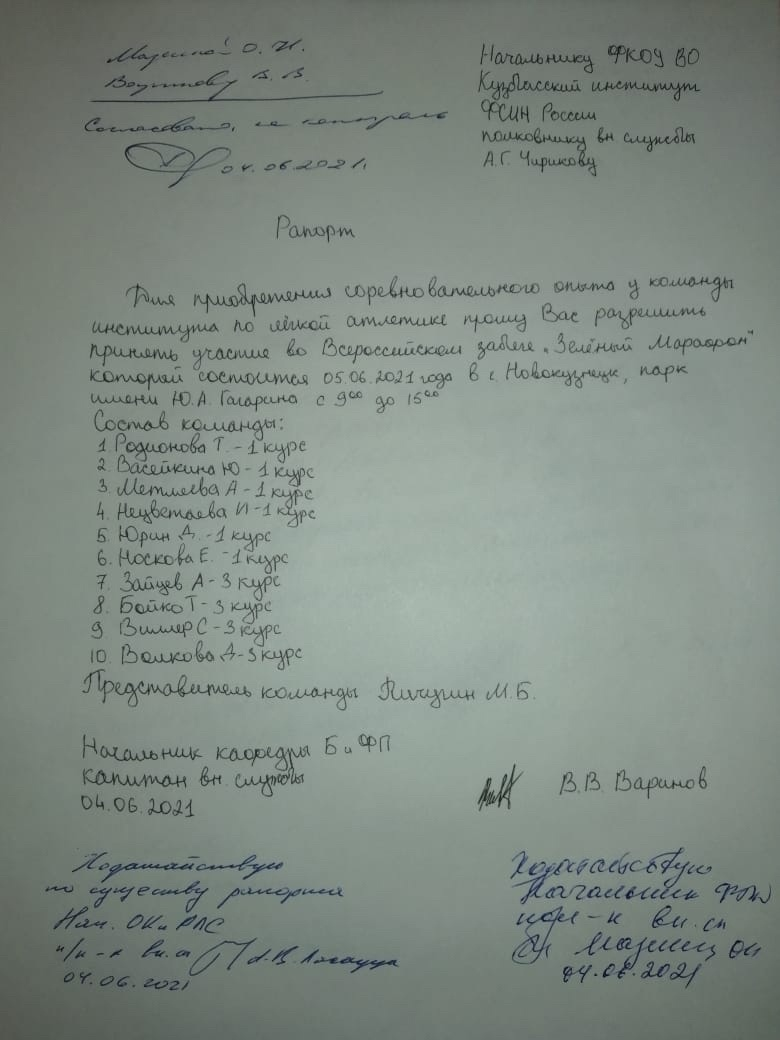 О. И.
В. В.
Согласовано,
04.06.2021г.
Начальнику ФКОУ ВО
Кузбасский институт
ФСИН России
полковнику вн службы
А.Г. Чирикову
Рапорт
Для приобретения соревновательного опыта у команды
института по лёгкой атлетике прошу Вас разрешить
принять участие во Всероссийском забеге „Зелёный Марафон"
который состоится 05.06.2021 года в г. Новокузнецк, парк
имени Ю.А. Гагарина с 9⁰⁰ до 15⁰⁰
Состав команды:
1. Родионова Т. - 1 курс
2. Васейкина Ю - 1 курс
3. Метлеева А - 1 курс
4. Нецветаева И - 1 курс
5. Юрин Д. - 1 курс
6. Носкова Е. - 1 курс
7. Зайцев А - 3 курс
8. Бойко Т - 3 курс
9 Виллер С - 3 курс
10. Волкова Д - 3 курс
Представитель команды Пичугин М.Б.
Начальник кафедры Б и ФП
капитан вн. службы
04.06.2021
В.В. Варинов
Ходатайствую
по существу рапорта
Нач. ОК и РЛС
п/п-к вн. сл
04.06.2021
Ходатайствую
Начальник
вн. сл
04.06.2021